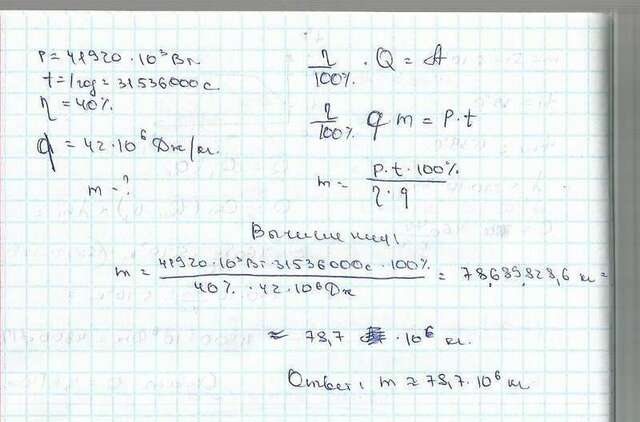 P = 41920 · 10³ Вт
t = 1 год = 31536000 с
η = 40%
q = 42 · 10⁶ Дж/кг.
m - ?
η/100% · Q = A
η/100% q m = P · t
m = P · t · 100% / η · q
Вычисления:
m = 41920 · 10³ Вт · 31536000 с · 100% / 40% · 42 · 10⁶ Дж = 78,689,828,6 кг =
≈ 78,7 · 10⁶ кг.
Ответ: m ≈ 78,7 · 10⁶ кг